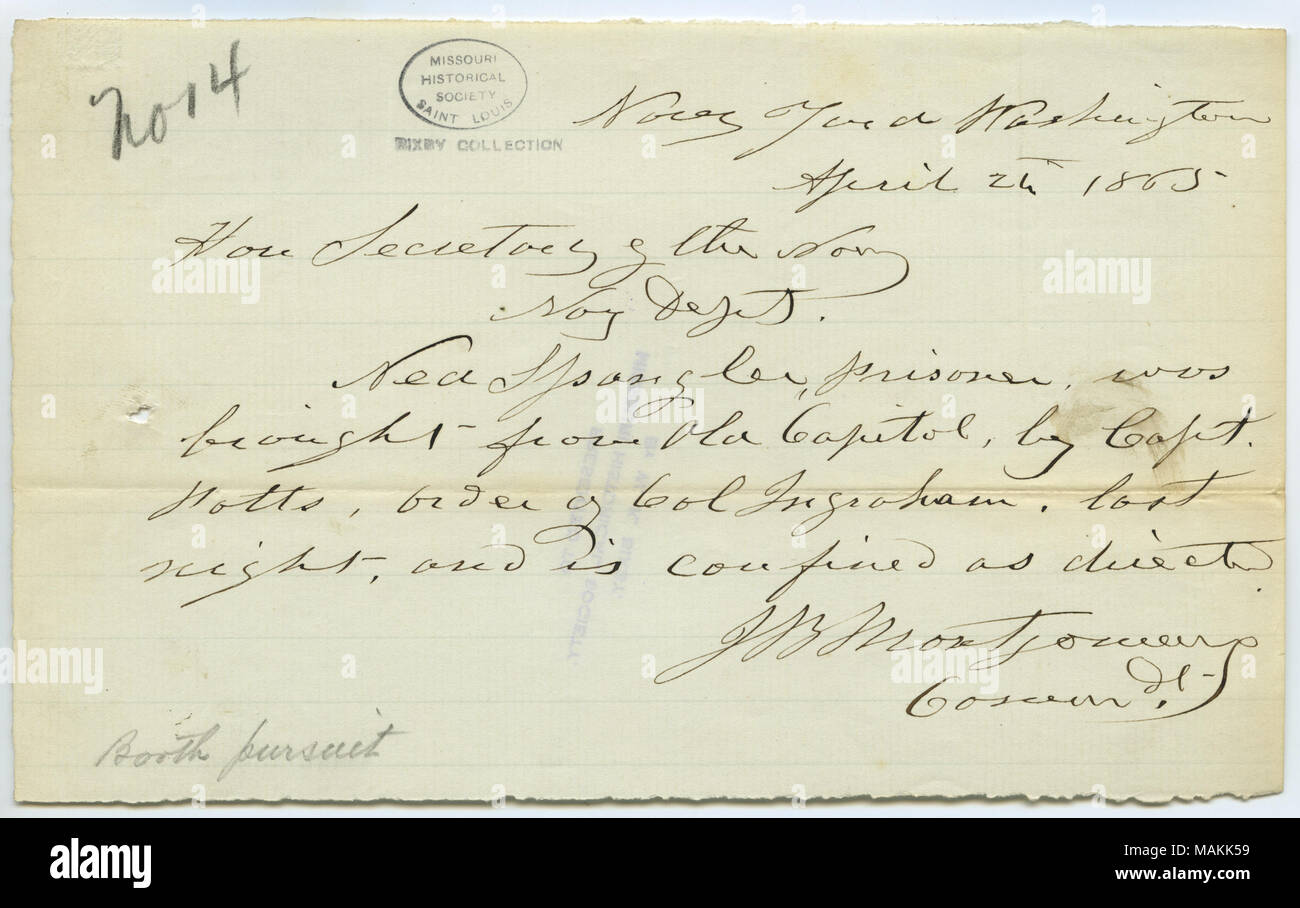 No 14
MISSOURI
HISTORICAL
SOCIETY
SAINT LOUIS
BIXBY COLLECTION
Navy Yard Washington
April 1865
Hon Secretary of the Navy
Navy Dept.
Ned Spangler, prisoner, was
brought from Old Capitol, by Capt.
Potts, order of Col Ingraham, last
night, and is confined as directed
J B Montgomery
Comm'dt.
Booth pursuit
PRESENTED TO THE
MISSOURI HISTORICAL SOCIETY
BY W. K. BIXBY.
alamy
alamy
alamy
Image ID: MAKK59
www.alamy.com